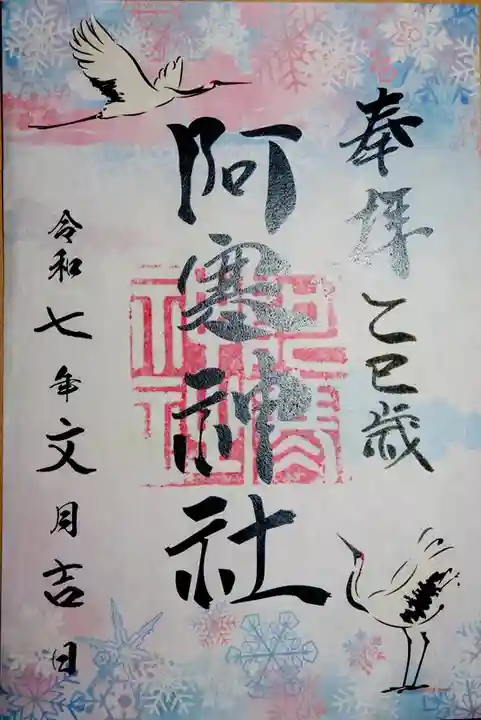 奉拝乙巳歳
阿寒神社
令和七年文月吉日